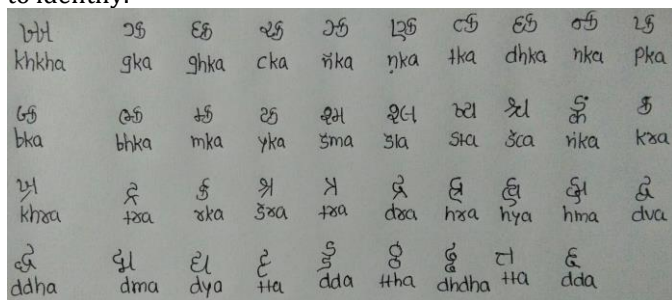 to identify:
ખ્ખ ગ્ક ઘ્ક ચ્ક ઞ્ક ણ્ક ત્ક ધ્ક ન્ક પ્ક
khkha gka ghka cka ñka ṇka tka dhka nka pka
બ્ક ભ્ક મ્ક ય્ક શ્મ શ્લ શ્ચ ઙ્ક ક્ર
bka bhka mka yka śma śla sta śca ṅka kra
ખ્ર ટ્ર ર્ક શ્ર ત્ર દ્ર હ્ર હ્ય હ્મ દ્વ
khra tra rka śra tra dra hra hya hma dva
દ્ધ દ્મ દ્ય ટ્ટ ડ્ડ ઠ્ઠ ઢ્ઢ ત્ત દ્દ
ddha dma dya tta dda ttha dhdha tta dda